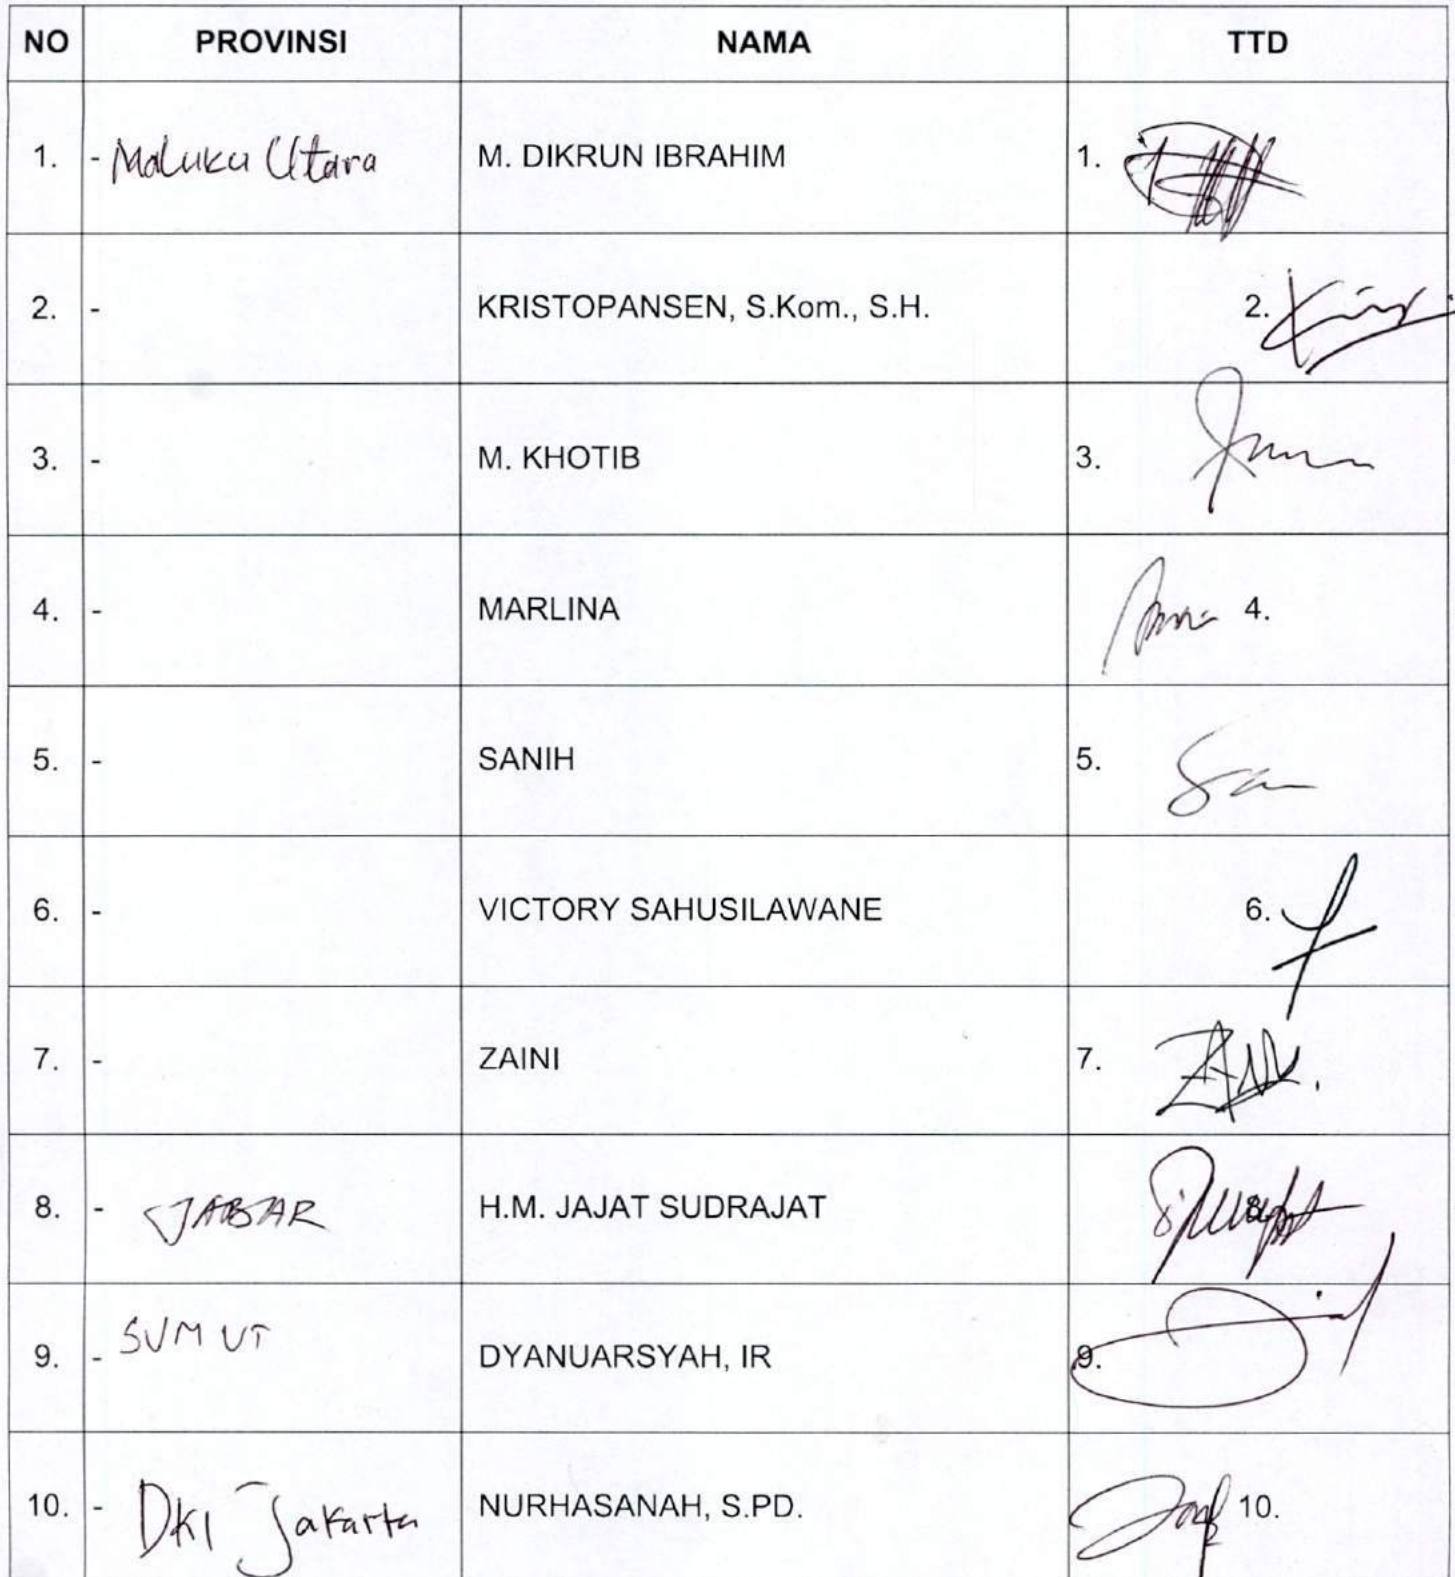 NO PROVINSI NAMA TTD
1. - Maluku Utara M. DIKRUN IBRAHIM 1.
2. - KRISTOPANSEN, S.Kom., S.H. 2.
3. - M. KHOTIB 3.
4. - MARLINA 4.
5. - SANIH 5.
6. - VICTORY SAHUSILAWANE 6.
7. - ZAINI 7.
8. - JABAR H.M. JAJAT SUDRAJAT 8.
9. - SUMUT DYANUARSYAH, IR 9.
10. - DKI Jakarta NURHASANAH, S.PD. 10.